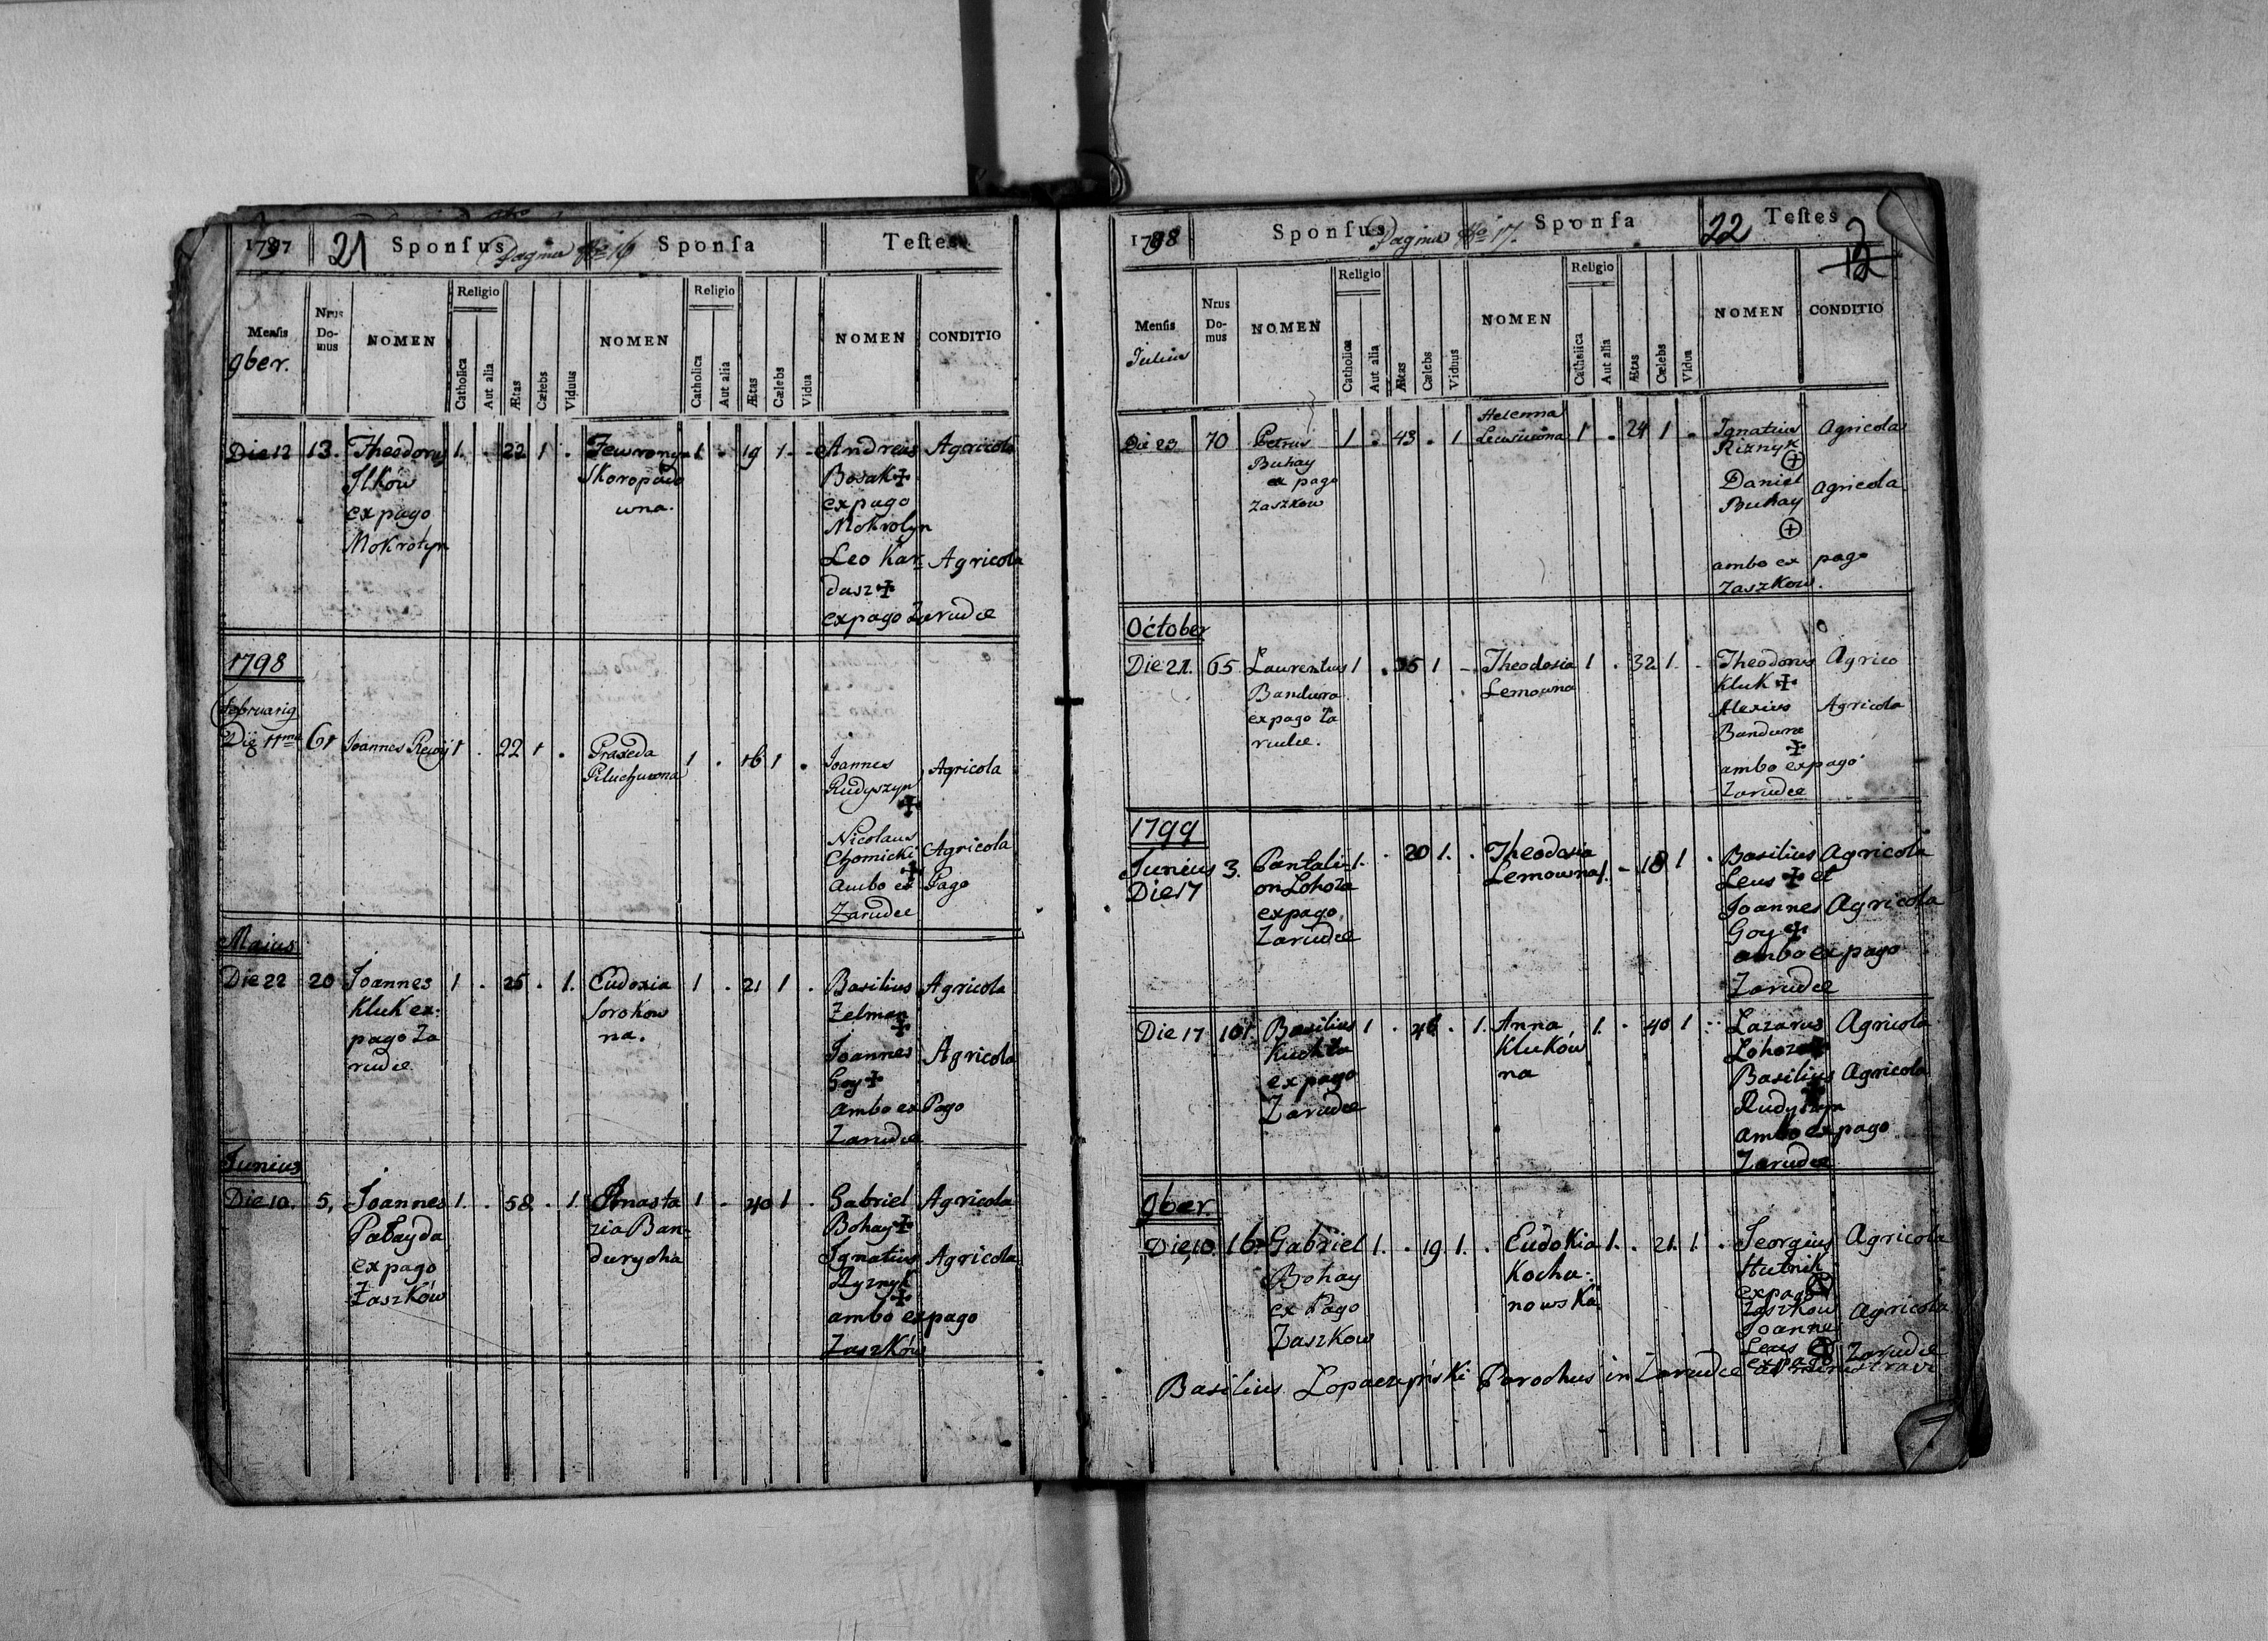 1797 21 Sponsus Pagina Nro 16 Sponsa Testes
Mensis 9ber. Nrus Domus NOMEN Religio Catholica Aut alia Ætas Cælebs Viduus NOMEN Religio Catholica Aut alia Ætas Cælebs Vidua NOMEN CONDITIO
Die 12 13. Theodorus 1. . 22 1 . Fewronya 1 . 19 1. - Andreas Agricola
Ilków Skoropado Bosak ✠
ex pago wna. ex pago
Mokrotyn Mokrotyn
Leo Kar- Agricola
dasz ✠
ex pago Zarudce
1798
Februarig
Die 11ma 61 Joannes Rewij 1 . 22 1 . Praxeda 1 . 16 1 . Joannes Agricola
Piluchowna Rudyszyn
✠
Nicolaus
Chomicki Agricola
✠
Ambo ex Pago
Zarudce
Maius
Die 22 20 Joannes 1 . 25 . 1. Eudoxia 1 . 21 1 . Basilius Agricola
Kluk ex Sorokow Zelman
pago Za na. ✠
rudce Joannes Agricola
Goy ✠
ambo ex Pago
Zarudce
Junius
Die 10. 5, Joannes 1. . 58. . 1. Anasta 1 . 40 1 . Gabriel Agricola
Patayda zia Ban- Bohay ✠
ex pago durycha Ignatius Agricola
Zaszków Ryznyk
✠
ambo ex pago
Zaszków
1798 Sponsus Pagina Nro 17. Sponsa 22 Testes
12
Mensis Julius Nrus Domus NOMEN Religio Catholica Aut alia Ætas Cælebs Viduus NOMEN Religio Catholica Aut alia Ætas Cælebs Vidua NOMEN CONDITIO
Die 23 70 Petrus 1 . 43 . 1 Helenna 1 . 24 1 . Ignatius Agricola
Buhay Riznyk
ex pago Daniel Agricola
Zaszkow Buhay
ambo ex pago
Zaszkow.
October
Die 21. 65 Laurentius 1 . 35 1 - Theodosia 1 . 32 1. - Theodorus Agrico
Bandura Lemowna Kluk ✠
ex pago Za Alexius Agricola
rudce. Bandura
✠
ambo ex pago
Zarudce
1799
Junius 3. Pantali- 1. . 20 1. . Theodosia Basilius Agricola
Die 17 on Lohoza Lemowna 1. - 18 1 . Leus ✠ et
ex pago Joannes Agricola
Zarudce Goy ✠
ambo ex pago
Zarudce
Die 17 101. Basilius 1 . 46 . 1. Anna 1. . 40 1 Lazarus Agricola
Kuchta Klukow Lohoza ✠
ex pago na Basilius Agricola
Zarudce Rudyszyn
ambo ex pago
Zarudce
9ber.
Die 10. 16. Gabriel 1. . 19 1. . Eudokia 1. . 21. 1. . Georgius Agricola
Bohay Kocha- Hutnik
ex Pago nowska ex pago
Zaszkow Zaszkow
Joannes Agricola
Leus
ex pago Zarudce
Basilius Lopaczyński Parochus in Zarudce administravi